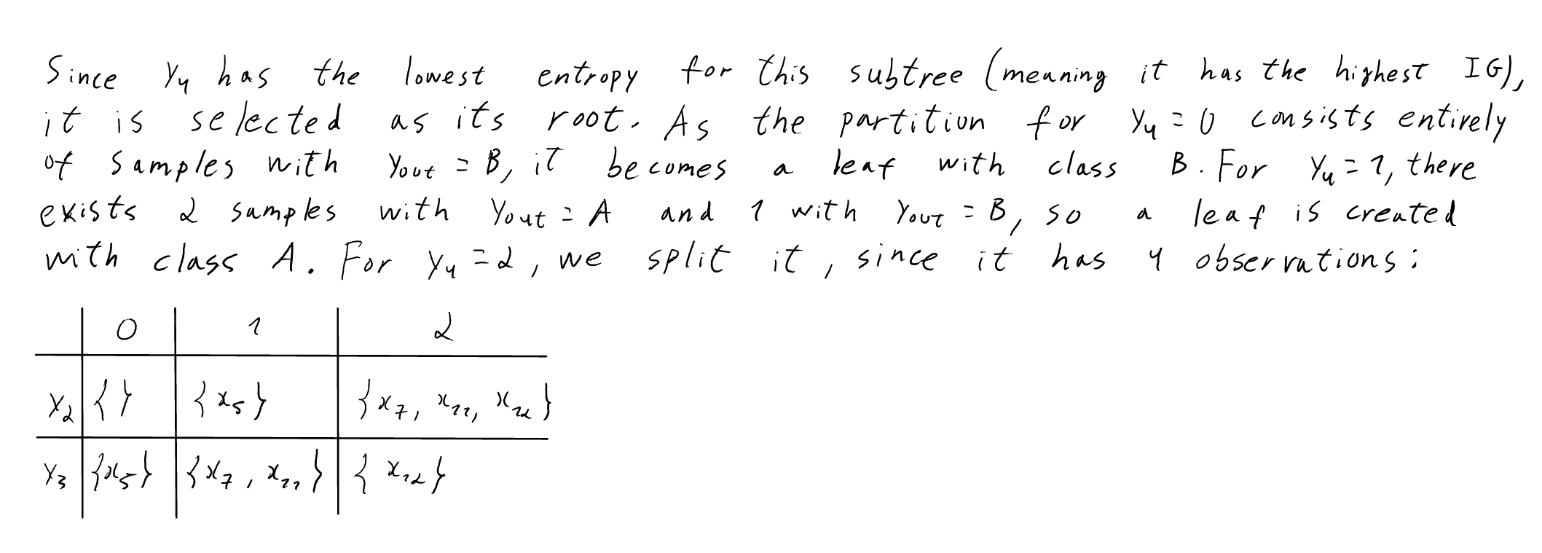 Since y₄ has the lowest entropy for this subtree (meaning it has the highest IG),
it is selected as its root. As the partition for y₄ = 0 consists entirely
of samples with yout = B, it becomes a leaf with class B. For y₄ = 1, there
exists 2 samples with yout = A and 1 with yout = B, so a leaf is created
with class A. For y₄ = 2, we split it, since it has 4 observations:
0 1 2
y₂ {} {x₅} {x₇, x₁₁, x₁₂}
y₃ {x₅} {x₇, x₁₁} {x₁₂}